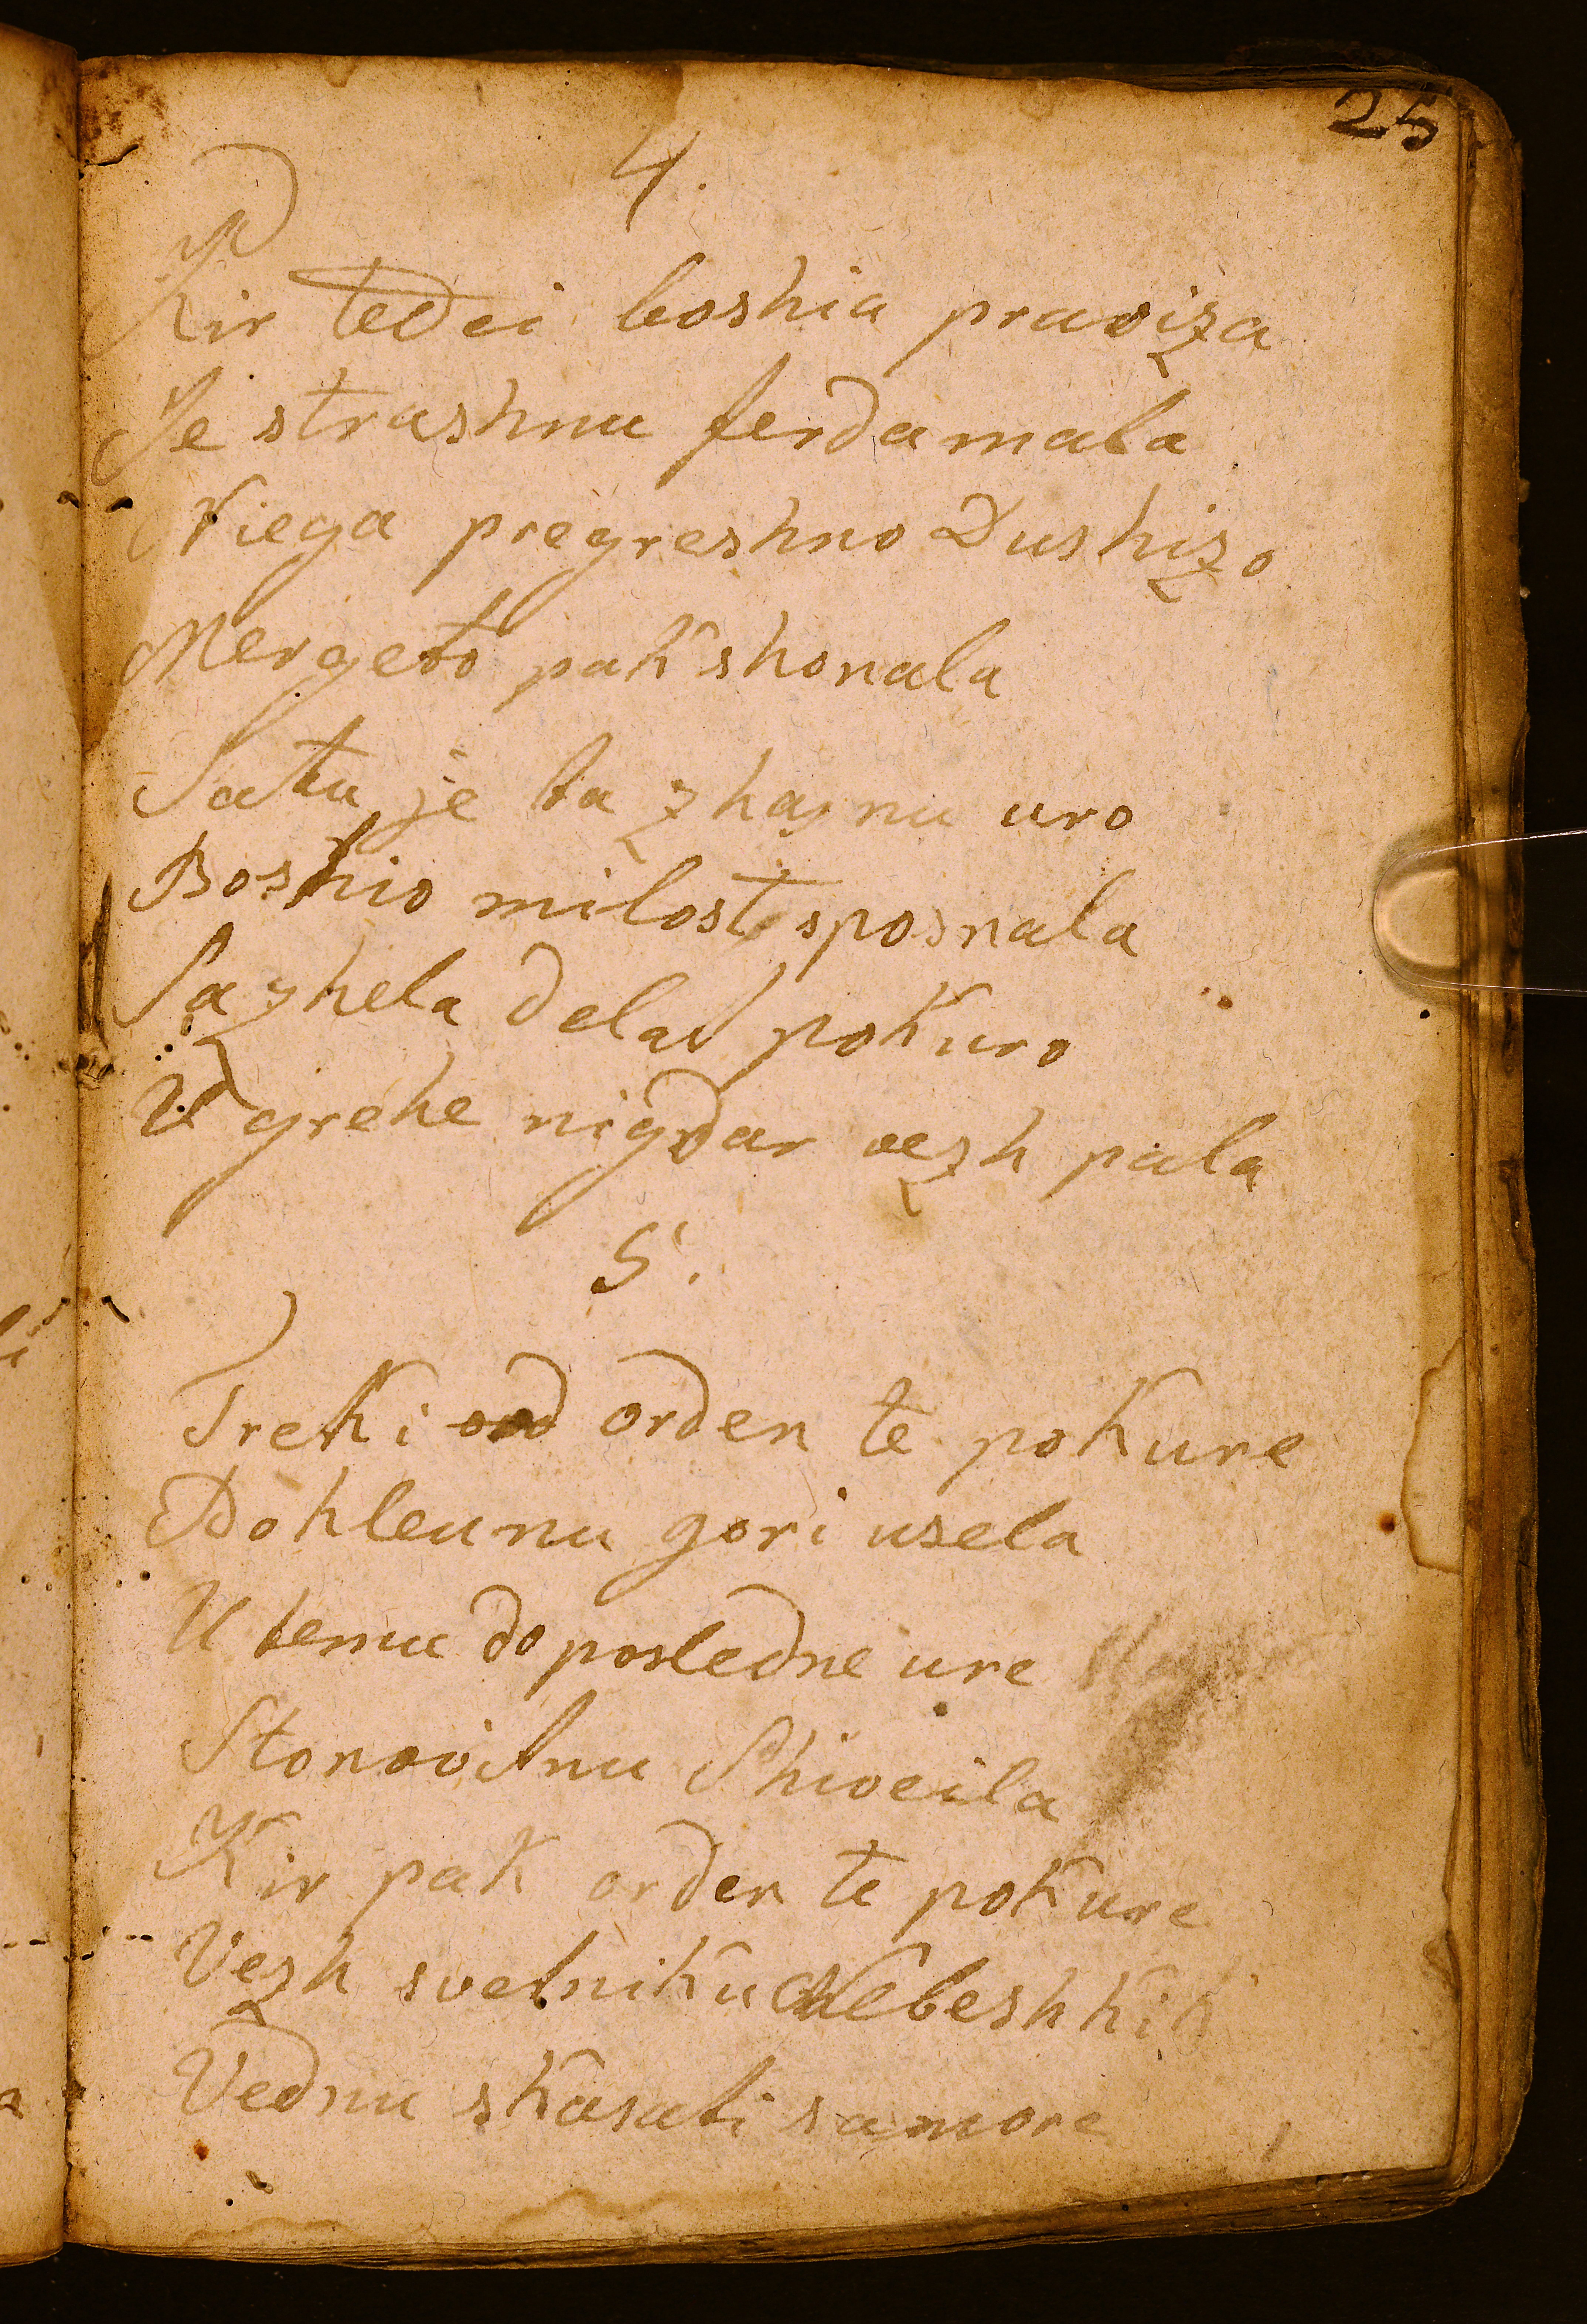 25
4.
Kir tedei boshia praviza
Je strashnu ferdamala
Niega pregreshno Dushizo
Mergeto pak shonala
Satu je ta zhasnu uro
Boshio milost sposnala
Sazhela delat pokuro
V grehe nigdar vezh pala
5.
Treki od orden te pokure
Dohleunu gori usela
U temu do posledne ure
Stonovitnu Shiveila
Kir pak orden te pokure
Vezh svetniku Nebeshkih
Vednu skasati samore